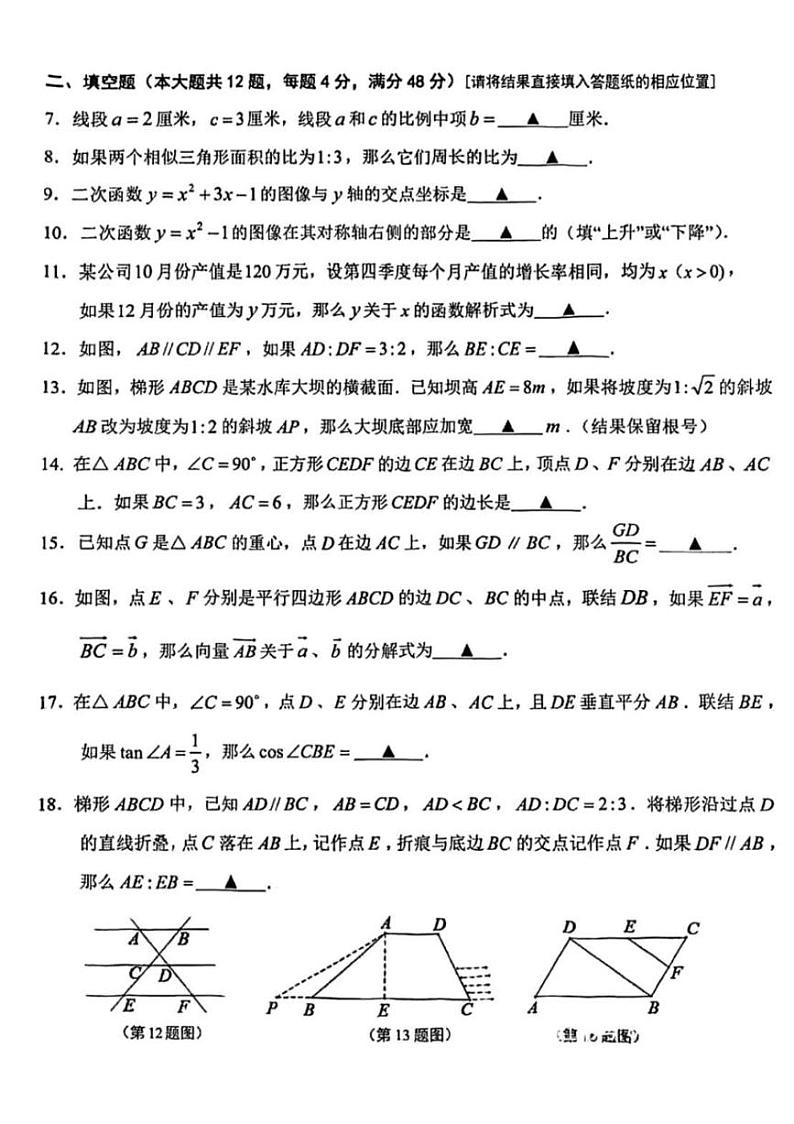 二、填空题（本大题共12题，每题4分，满分48分）[请将结果直接填入答题纸的相应位置]
7．线段a=2厘米，c=3厘米，线段a和c的比例中项b=____▲____厘米．
8．如果两个相似三角形面积的比为1:3，那么它们周长的比为____▲____．
9．二次函数y=x²+3x−1的图像与y轴的交点坐标是____▲____．
10．二次函数y=x²−1的图像在其对称轴右侧的部分是____▲____的（填“上升”或“下降”）．
11．某公司10月份产值是120万元，设第四季度每个月产值的增长率相同，均为x（x>0），
如果12月份的产值为y万元，那么y关于x的函数解析式为____▲____．
12．如图，AB//CD//EF，如果AD:DF=3:2，那么BE:CE=____▲____．
13．如图，梯形ABCD是某水库大坝的横截面．已知坝高AE=8m，如果将坡度为1:√2的斜坡
AB改为坡度为1:2的斜坡AP，那么大坝底部应加宽____▲____m．（结果保留根号）
14．在△ABC中，∠C=90°，正方形CEDF的边CE在边BC上，顶点D、F分别在边AB、AC
上．如果BC=3，AC=6，那么正方形CEDF的边长是____▲____．
15．已知点G是△ABC的重心，点D在边AC上，如果GD // BC，那么GD/BC=____▲____．
16．如图，点E、F分别是平行四边形ABCD的边DC、BC的中点，联结DB，如果EF⃗=a⃗，
BC⃗=b⃗，那么向量AB⃗关于a⃗、b⃗的分解式为____▲____．
17．在△ABC中，∠C=90°，点D、E分别在边AB、AC上，且DE垂直平分AB．联结BE，
如果tan∠A=1/3，那么cos∠CBE=____▲____．
18．梯形ABCD中，已知AD//BC，AB=CD，AD<BC，AD:DC=2:3．将梯形沿过点D
的直线折叠，点C落在AB上，记作点E，折痕与底边BC的交点记作点F．如果DF//AB，
那么AE:EB=____▲____．
A B
C D
E F
（第12题图）
A D
P B E C
（第13题图）
D E C
F
A B
题图）